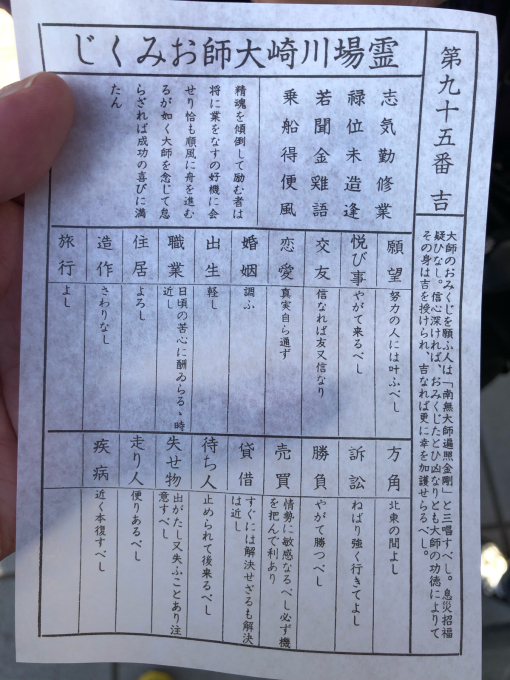 第九十五番 吉
大師のおみくじを願ふ人は「南無大師遍照金剛」と三唱すべし。息災招福
疑ひなし。信心深ければ、おみくじたとひ凶なりとも大師の功徳によりて
その身は吉を授けられ、吉なれば更に幸を加護せらるべし。
霊場川崎大師おみくじ
志気勤修業
禄位未造逢
若聞金雞語
乗船得便風
精魂を傾倒して励む者は
将に業をなすの好機に会
せり恰も順風に舟を進む
るが如く大師を念じて怠
らざれば成功の喜びに満
たん
願望 努力の人には叶ふべし
悦び事 やがて来るべし
交友 信なれば友又信なり
恋愛 真実自ら通ず
婚姻 調ふ
出生 軽し
職業 日頃の苦心に酬ゐらるゝ時
近し
住居 よろし
造作 さわりなし
旅行 よし
方角 北東の間よし
訴訟 ねばり強く行きてよし
勝負 やがて勝つべし
売買 情勢に敏感なるべし必ず機
を把んで利あり
貸借 すぐには解決せざるも解決
は近し
待ち人 止められて後来るべし
失せ物 出がたし又失ふことあり注
意すべし
走り人 便りあるべし
疾病 近く本復すべし